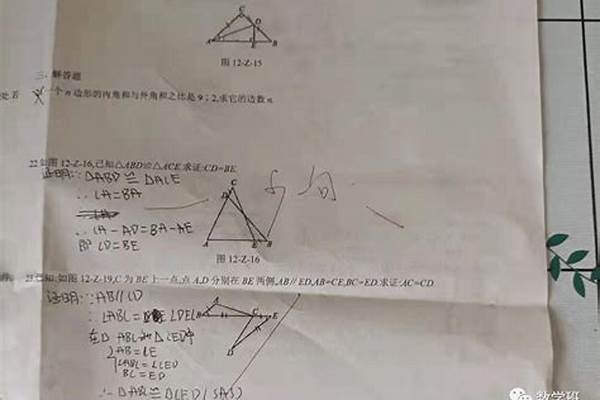 图 12-Z-15
三、解答题
一个 n 边形的内角和与外角和之比是 9:2,求它的边数 n.
22.如图 12-Z-16,已知△ABD≌△ACE.求证:CD=BE.
证明:∵△ABD≌△ACE
∴CA=BA
∴CA-AD=BA-AE
即 CD=BE
图 12-Z-16
23.已知,如图 12-Z-19,C 为 BE 上一点,点 A,D 分别在 BE 两侧,AB∥ED,AB=CE,BC=ED.求证:AC=CD
证明:∵AB//CD
∴∠ABC=∠DEC
AB=CE
∠ABC=∠CED
BC=ED
(SAS)
数学班